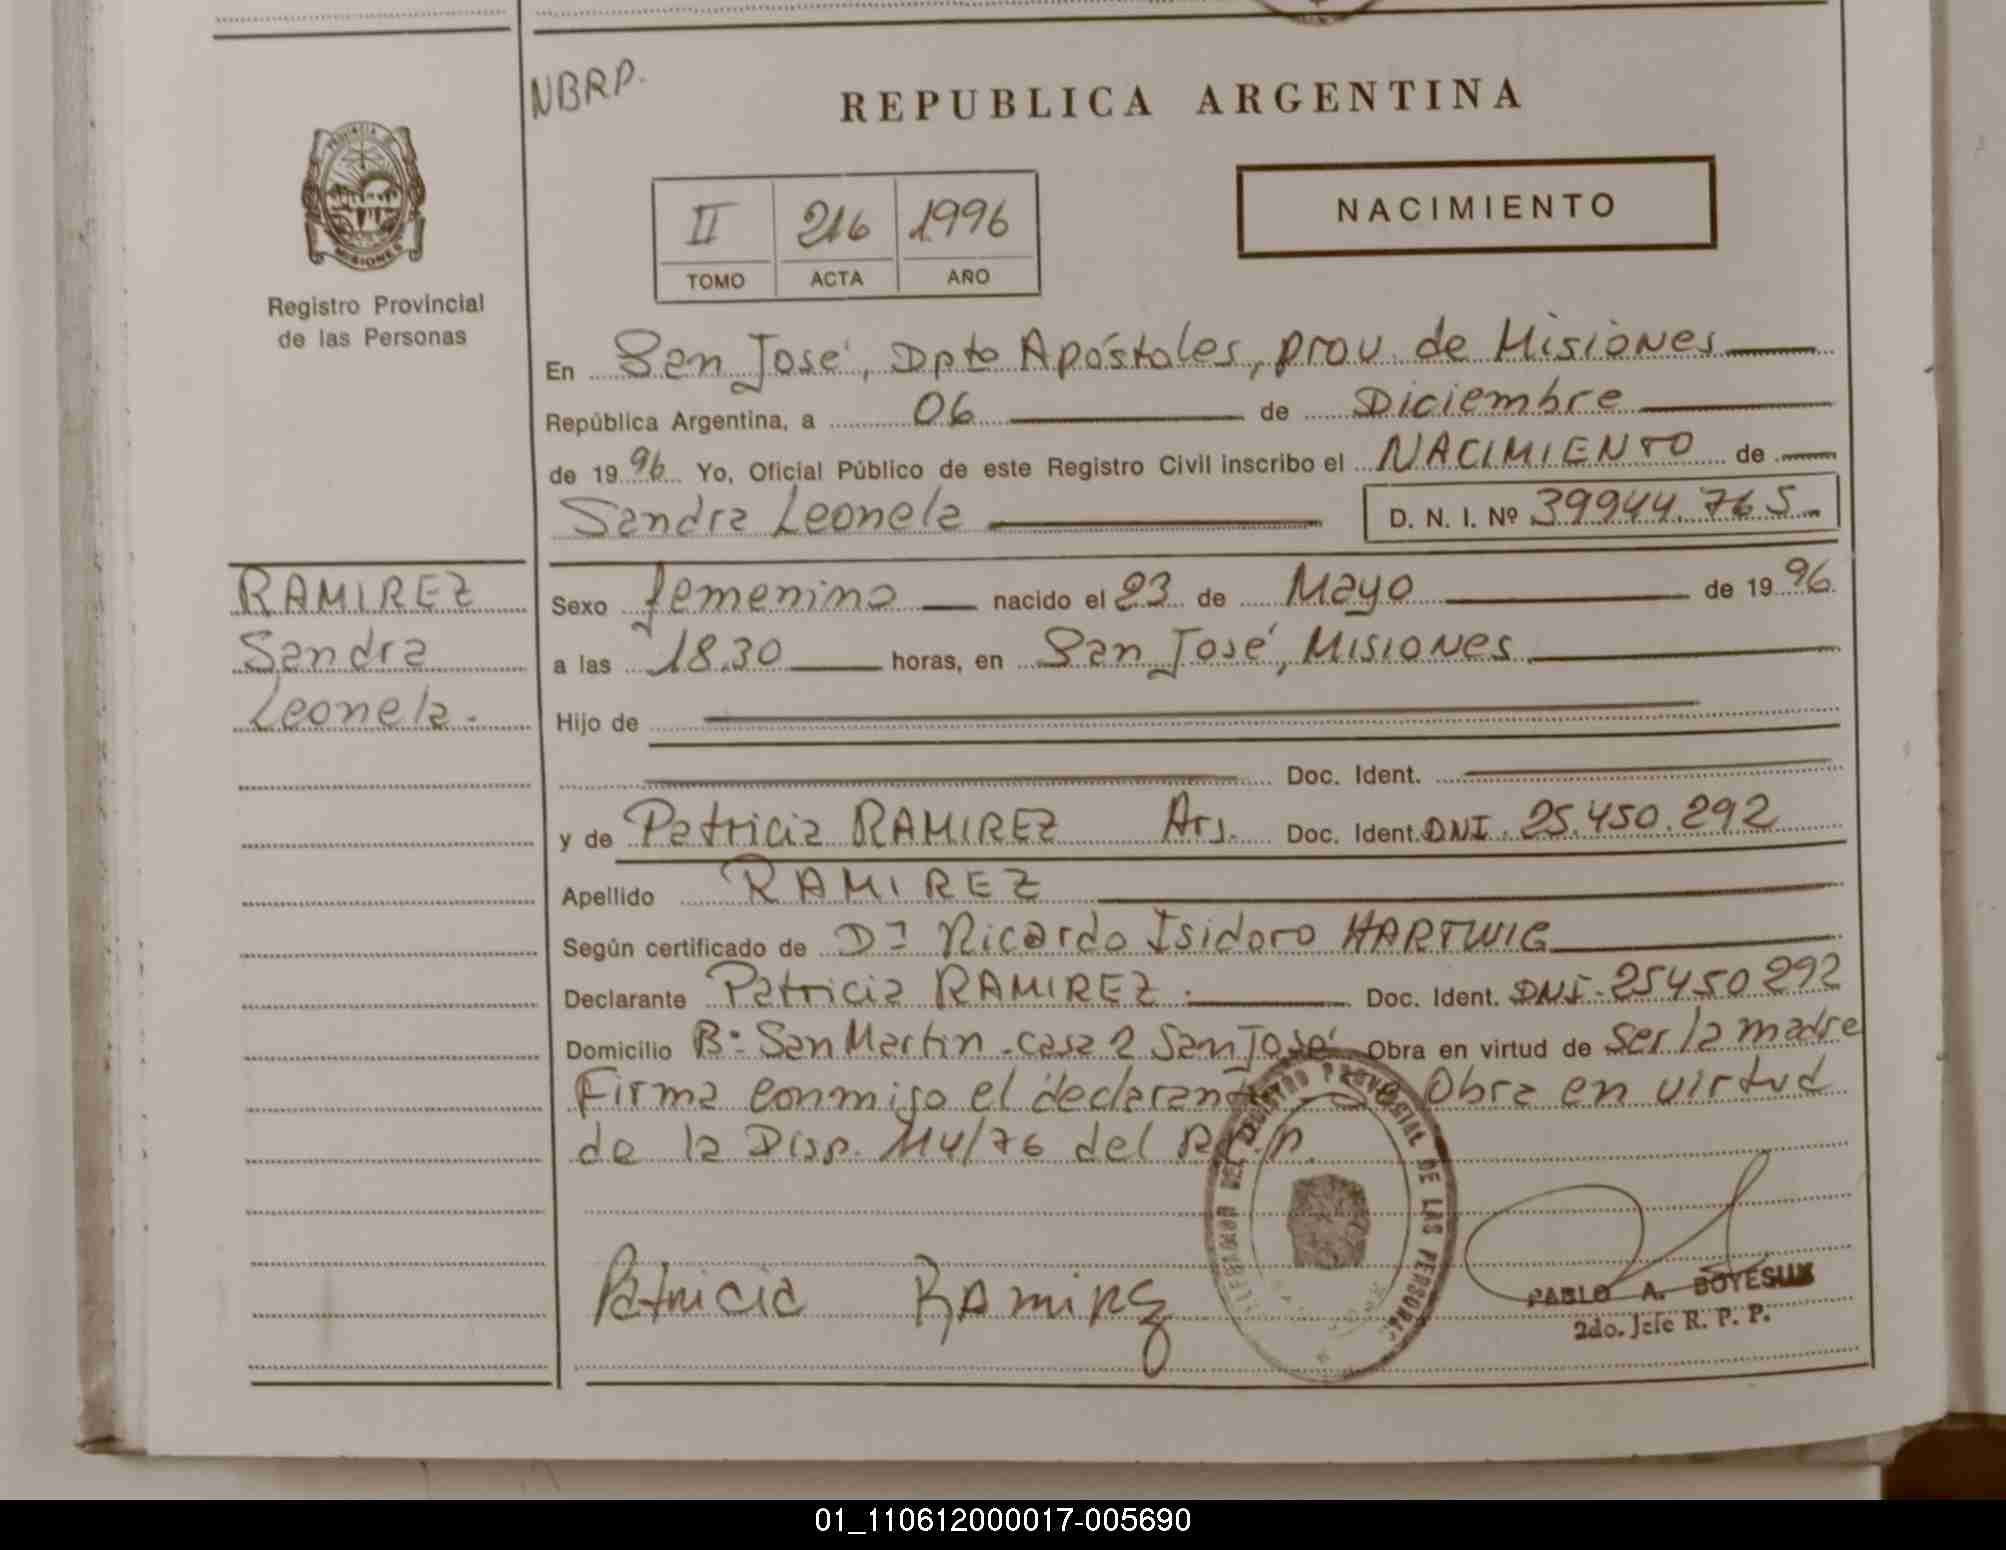 NBRP.
REPUBLICA ARGENTINA
PROVINCIA DE
MISIONES
Registro Provincial
de las Personas
II 216 1996
TOMO ACTA AÑO
NACIMIENTO
En San José, Dpto Apóstoles, prov. de Misiones
República Argentina, a 06 de Diciembre
de 1996 Yo, Oficial Público de este Registro Civil inscribo el NACIMIENTO de
Sandra Leonela D. N. I. Nº 39944.765
RAMIREZ
Sandra
Leonela.
Sexo femenino nacido el 23 de Mayo de 1996
a las 18.30 horas, en San José, Misiones
Hijo de
Doc. Ident.
y de Patricia RAMIREZ Arj. Doc. Ident. DNI. 25.450.292
Apellido RAMIREZ
Según certificado de Dr Ricardo Isidoro HARTWIG
Declarante Patricia RAMIREZ. Doc. Ident. DNI. 25450292
Domicilio Bº San Martin - casa 2 San José Obra en virtud de ser la madre
Firma conmigo el declarante Obra en virtud
de la Disp. 114/76 del R.P.P.
DEL REGISTRO PROVINCIAL DE LAS PERSONAS
Patricia Ramirez
PABLO A. BOYESUK
2do. Jefe R. P. P.
01_110612000017-005690